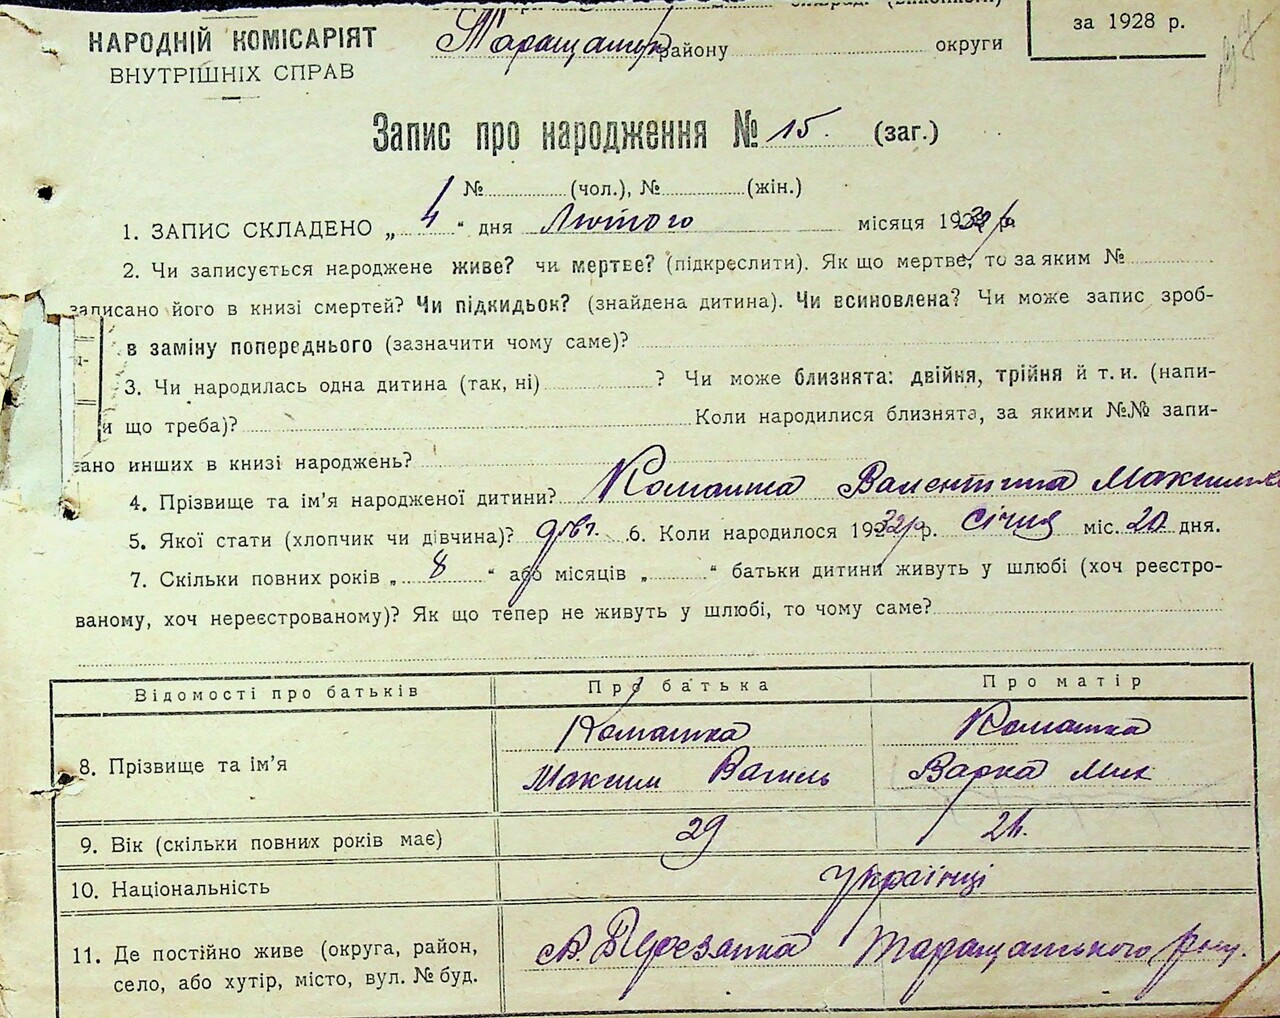 НАРОДНІЙ КОМІСАРІЯТ
ВНУТРІШНІХ СПРАВ
Таращанськ району округи
за 1928 р.
Запис про народження № 15. (заг.)
№ (чол.), № (жін.)
1. ЗАПИС СКЛАДЕНО „ 4 “ дня Лютого місяця 1932 р.
2. Чи записується народжене живе? чи мертве? (підкреслити). Як що мертве, то за яким №
записано його в книзі смертей? Чи підкидьок? (знайдена дитина). Чи всиновлена? Чи може запис зроб-
в заміну попереднього (зазначити чому саме)?
3. Чи народилась одна дитина (так, ні) ? Чи може близнята: двійня, трійня й т. и. (напи-
и що треба)? Коли народилися близнята, за якими №№ запи-
ано инших в книзі народжень?
4. Прізвище та ім’я народженої дитини? Комашка Валентина Максимов
5. Якої стати (хлопчик чи дівчина)? дівч. 6. Коли народилося 1932 р. січня міс. 20 дня.
7. Скільки повних років „ 8 “ або місяців „ “ батьки дитини живуть у шлюбі (хоч реєстро-
ваному, хоч нереєстрованому)? Як що тепер не живуть у шлюбі, то чому саме?
Відомості про батьків Про батька Про матір
Комашка Комашка
8. Прізвище та ім’я
Максим Василь Варка Мик
9. Вік (скільки повних років має) 29
10. Національність українці
11. Де постійно живе (округа, район,
село, або хутір, місто, вул. № буд.
В. Березанка Таращанського рну.